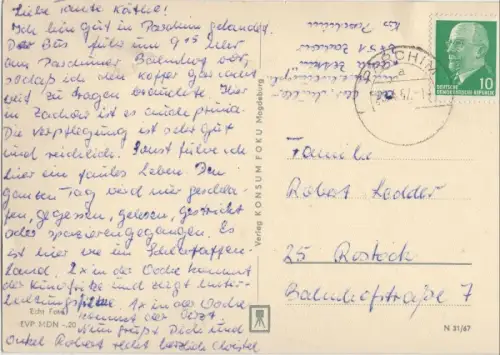 Liebe Tante Käthe!
Ich bin gut in Parchim gelandet.
Der Bus fuhr um 9¹⁵ Uhr
am Parchimer Bahnhof vor,
so daß ich den Koffer gar nicht
weit zu tragen brauchte. Hier
in Zachow ist es auch prima.
Die Verpflegung ist sehr gut
und reichlich. Sonst führe ich
hier ein faules Leben. Den
ganzen Tag wird nur geschla-
fen, gegessen, gelesen, gestrickt
oder spazierengegangen. Es
ist hier wie im Schlaraffen-
land. 2x in der Woche kommt
der und zeigt unter-
1x in der Woche
kommt der Arzt.
Nun grüßt Dich und
Onkel Robert recht herzlich Christel
Echt Foto
EVP MDN -,20
Verlag KONSUM FOKU Magdeburg
Zachow
Kr. Parchim
PARCHIM
a
DEUTSCHE
DEMOKRATISCHE REPUBLIK
10
Familie
Robert Kedder
25 Rostock
Bahnhofstraße 7
N 31/67